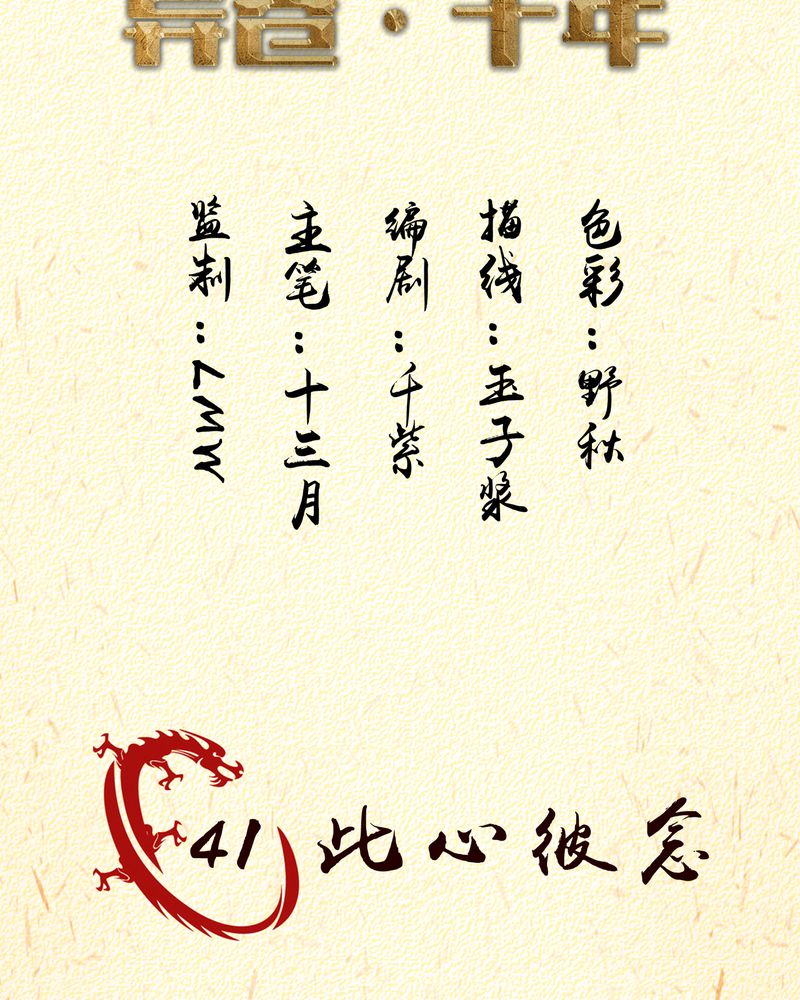 ·千年
监制：7MW
主笔：十三月
编剧：千紫
描线：玉子浆
色彩：野秋
41 此心彼念